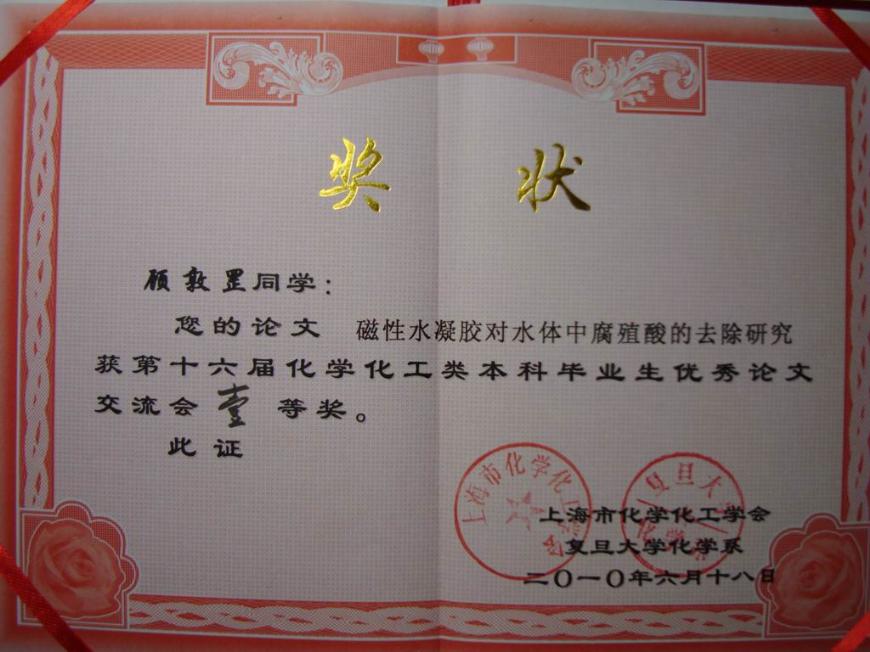 奖 状
顾敦罡同学：
您的论文 磁性水凝胶对水体中腐殖酸的去除研究
获第十六届化学化工类本科毕业生优秀论文
交流会 壹 等奖。
此证
上海市化学化工学会
复旦大学化学系
二〇一〇年六月十八日
上海市化学化工学会